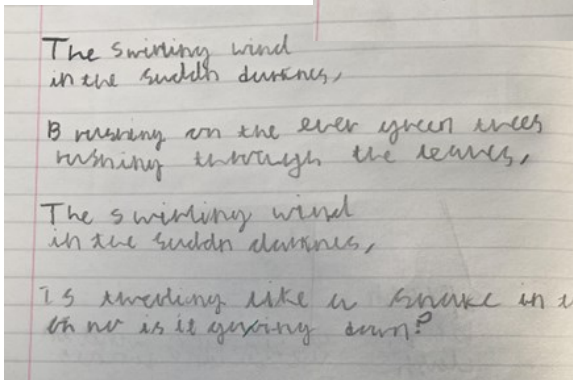 The swirling wind
in the suddn darknes,
B rushing on the ever green trees
rushing through the leaves,
The swirling wind
in the suddn darknes,
Is like a snake in
oh no is it going down?